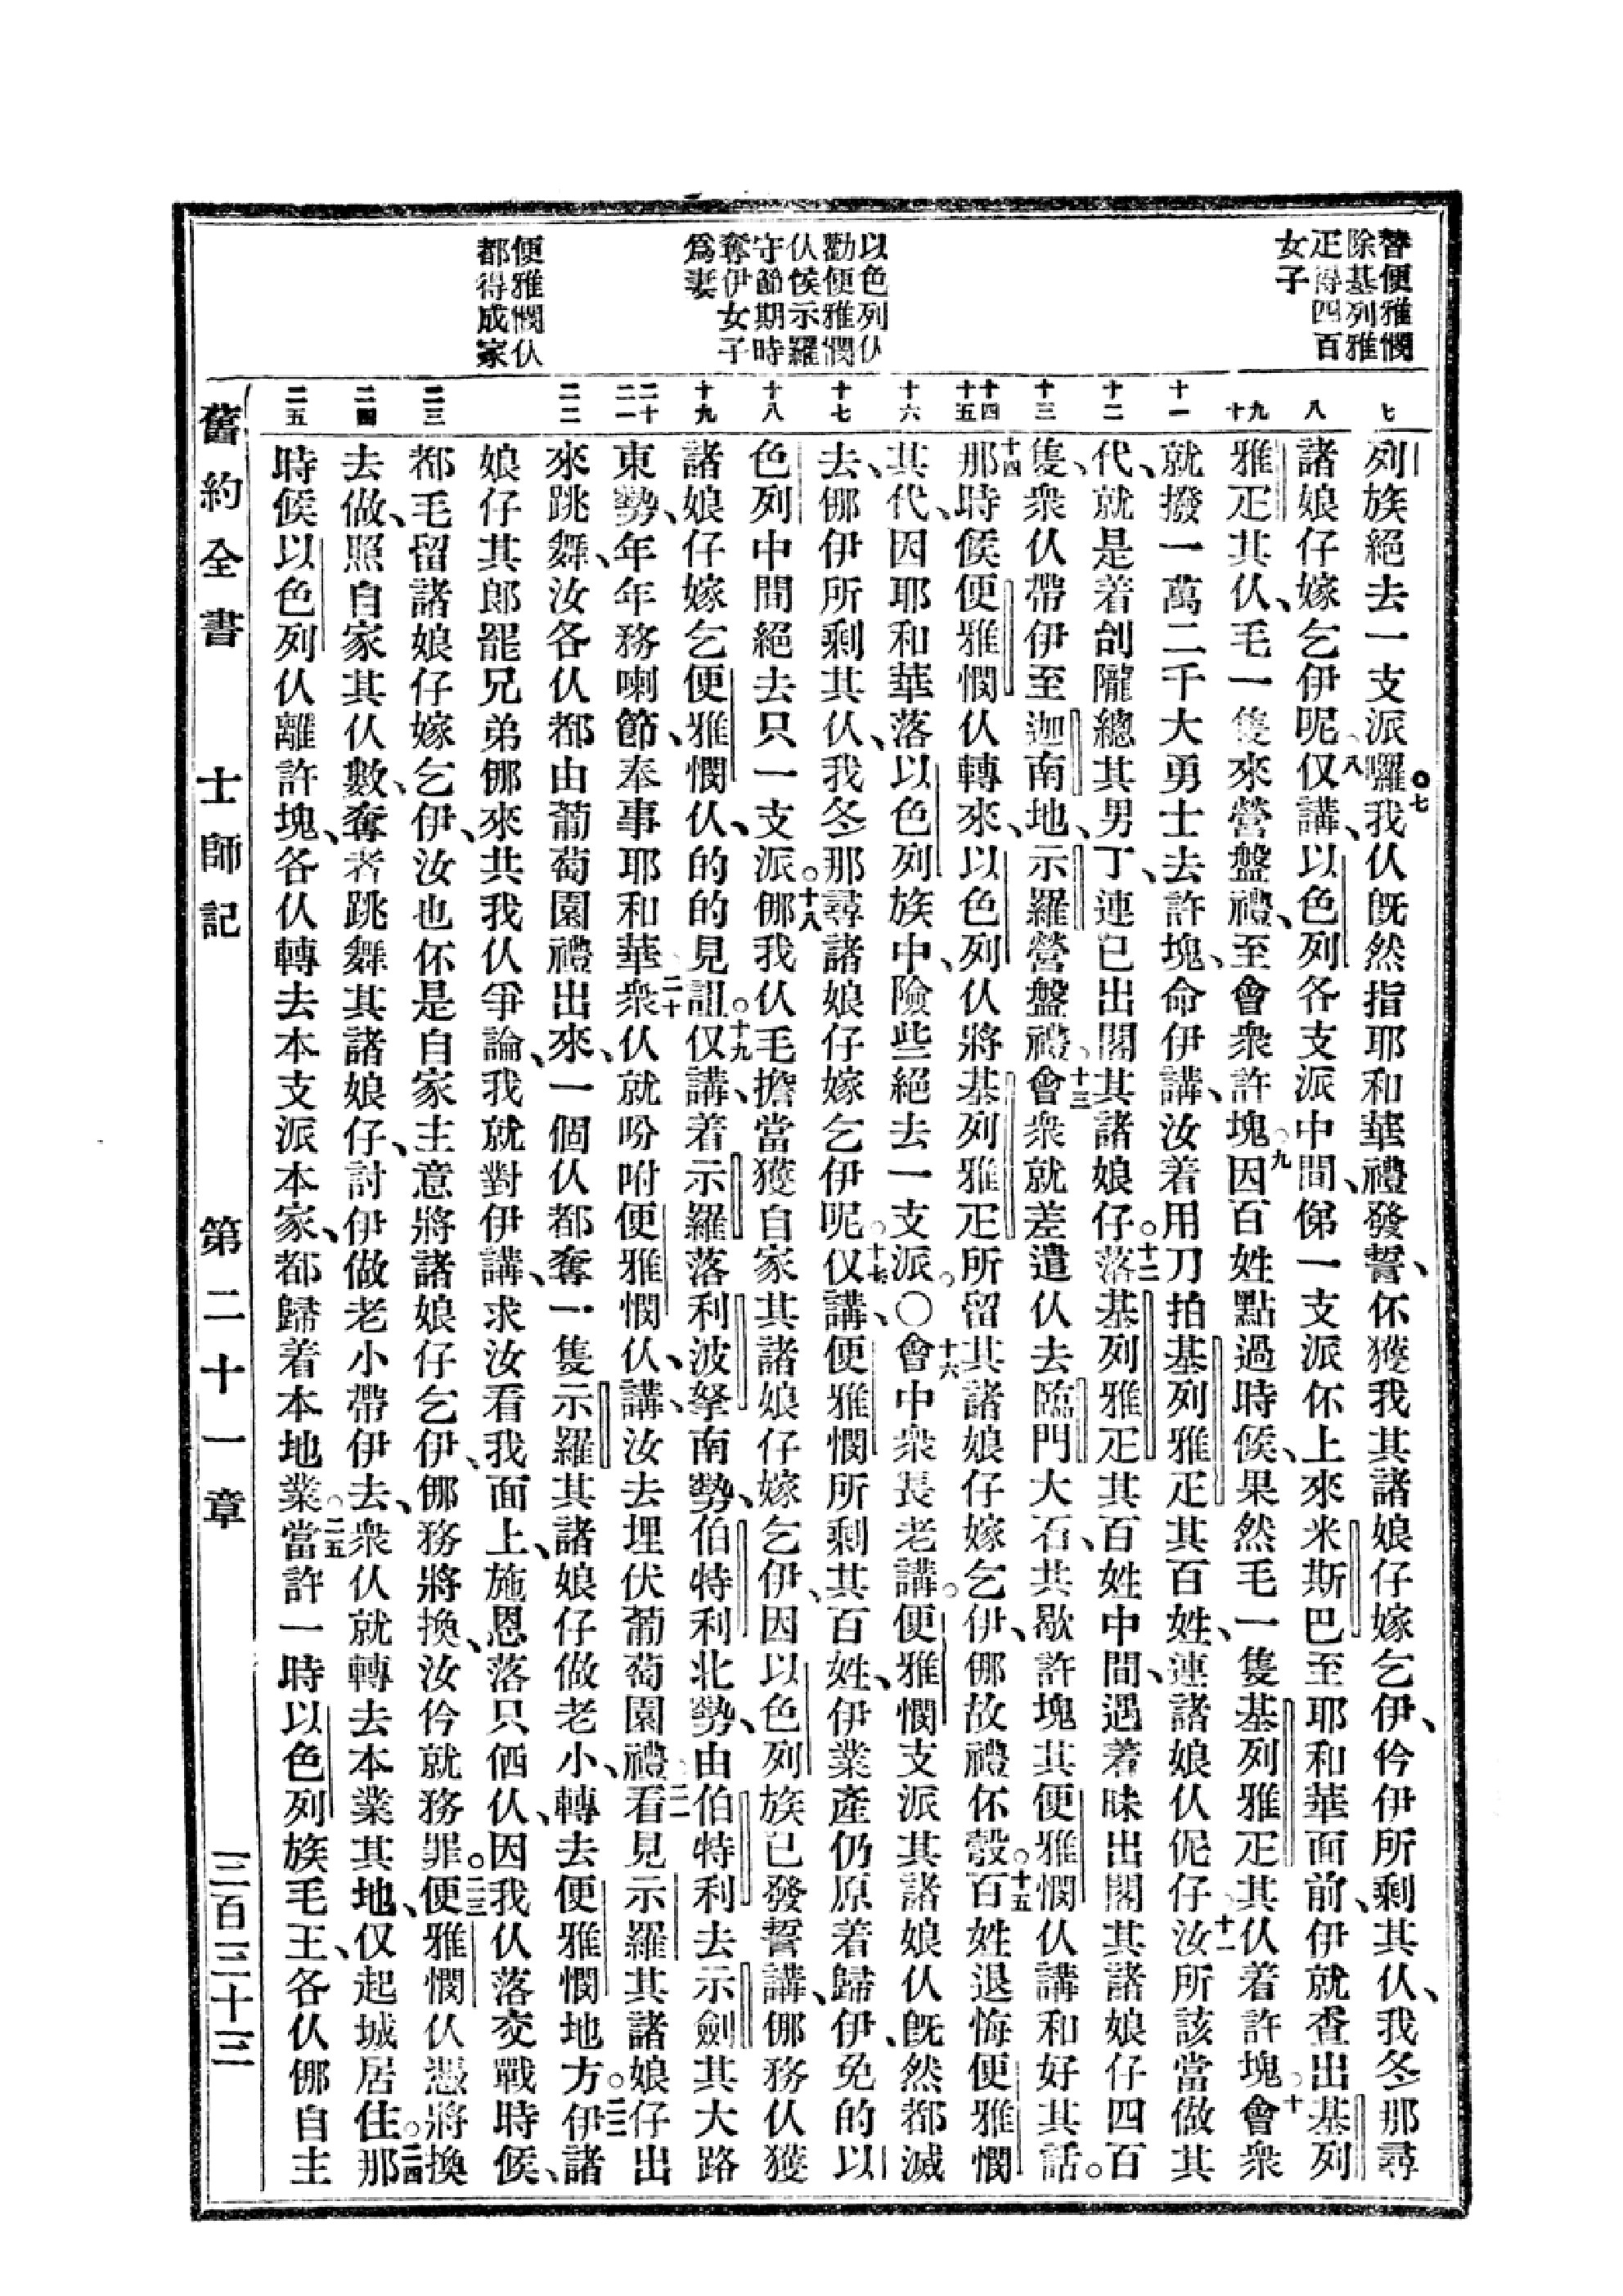 替便雅憫
除基列雅
疋得四百
女子
以色列仈
勸便雅憫
仈侯示羅
守節期時
奪伊女子
爲妻
便雅憫仈
都得成家
七
八
九
十
十一
十二
十三
十四
十五
十六
十七
十八
十九
二十
二一
二二
二三
二四
二五
列族絕去一支派囉。七我仈旣然指耶和華禮發誓、伓獲我其諸娘仔嫁乞伊、伶伊所剩其仈、我冬那尋
諸娘仔嫁乞伊呢。八仅講、以色列各支派中間、俤一支派伓上來米斯巴至耶和華面前、伊就查出基列
雅疋其仈、毛一隻來營盤禮、至會衆許塊。九因百姓點過時候、果然毛一隻基列雅疋其仈着許塊。十會衆
就撥一萬二千大勇士去許塊、命伊講、汝着用刀拍基列雅疋其百姓、連諸娘仈伲仔。十一汝所該當做其
代、就是着刣隴總其男丁、連已出閣其諸娘仔。十二落基列雅疋其百姓中間、遇着昧出閣其諸娘仔四百
隻、衆仈帶伊至迦南地、示羅營盤禮、十三會衆就差遣仈去臨門大石、共歇許塊其便雅憫仈講和好其話。
十四那時候便雅憫仈轉來、以色列仈將基列雅疋所留其諸娘仔嫁乞伊、㑚故禮伓彀。十五百姓退悔便雅憫
其代、因耶和華落以色列族中、險些絕去一支派。〇十六會中衆長老講。便雅憫支派其諸娘仈旣然都滅
去、㑚伊所剩其仈、我冬那尋諸娘仔嫁乞伊呢。十七仅講、便雅憫所剩其百姓、伊業產仍原着歸伊、免的以
色列中間絕去只一支派。十八㑚我仈毛擔當獲自家其諸娘仔嫁乞伊、因以色列族已發誓講、㑚務仈獲
諸娘仔嫁乞便雅憫仈、的的見詛。十九仅講、着示羅落利波拏南勢、伯特利北勢、由伯特利去示劍其大路
東勢、年年務喇節、奉事耶和華。二十衆仈就吩咐便雅憫仈、講、汝去埋伏葡萄園禮、二一看見示羅其諸娘仔出
來跳舞、汝各仈都由葡萄園禮出來、一個仈都奪一隻示羅其諸娘仔做老小、轉去便雅憫地方。二二伊諸
娘仔其郎罷兄弟㑚來共我仈爭論、我就對伊講、求汝看我面上、施恩落只価仈、因我仈落交戰時候、
都毛留諸娘仔嫁乞伊、汝也伓是自家主意將諸娘仔乞伊、㑚務將換、汝伶就務罪。二三便雅憫仈憑將換
去做、照自家其仈數、奪者跳舞其諸娘仔、討伊做老小帶伊去、衆仈就轉去本業其地、仅起城居住。二四那
時候以色列仈離許塊、各仈轉去本支派本家、都歸着本地業。二五當許一時以色列族毛王、各仈㑚自主
舊約全書　士師記　第二十一章　三百三十三